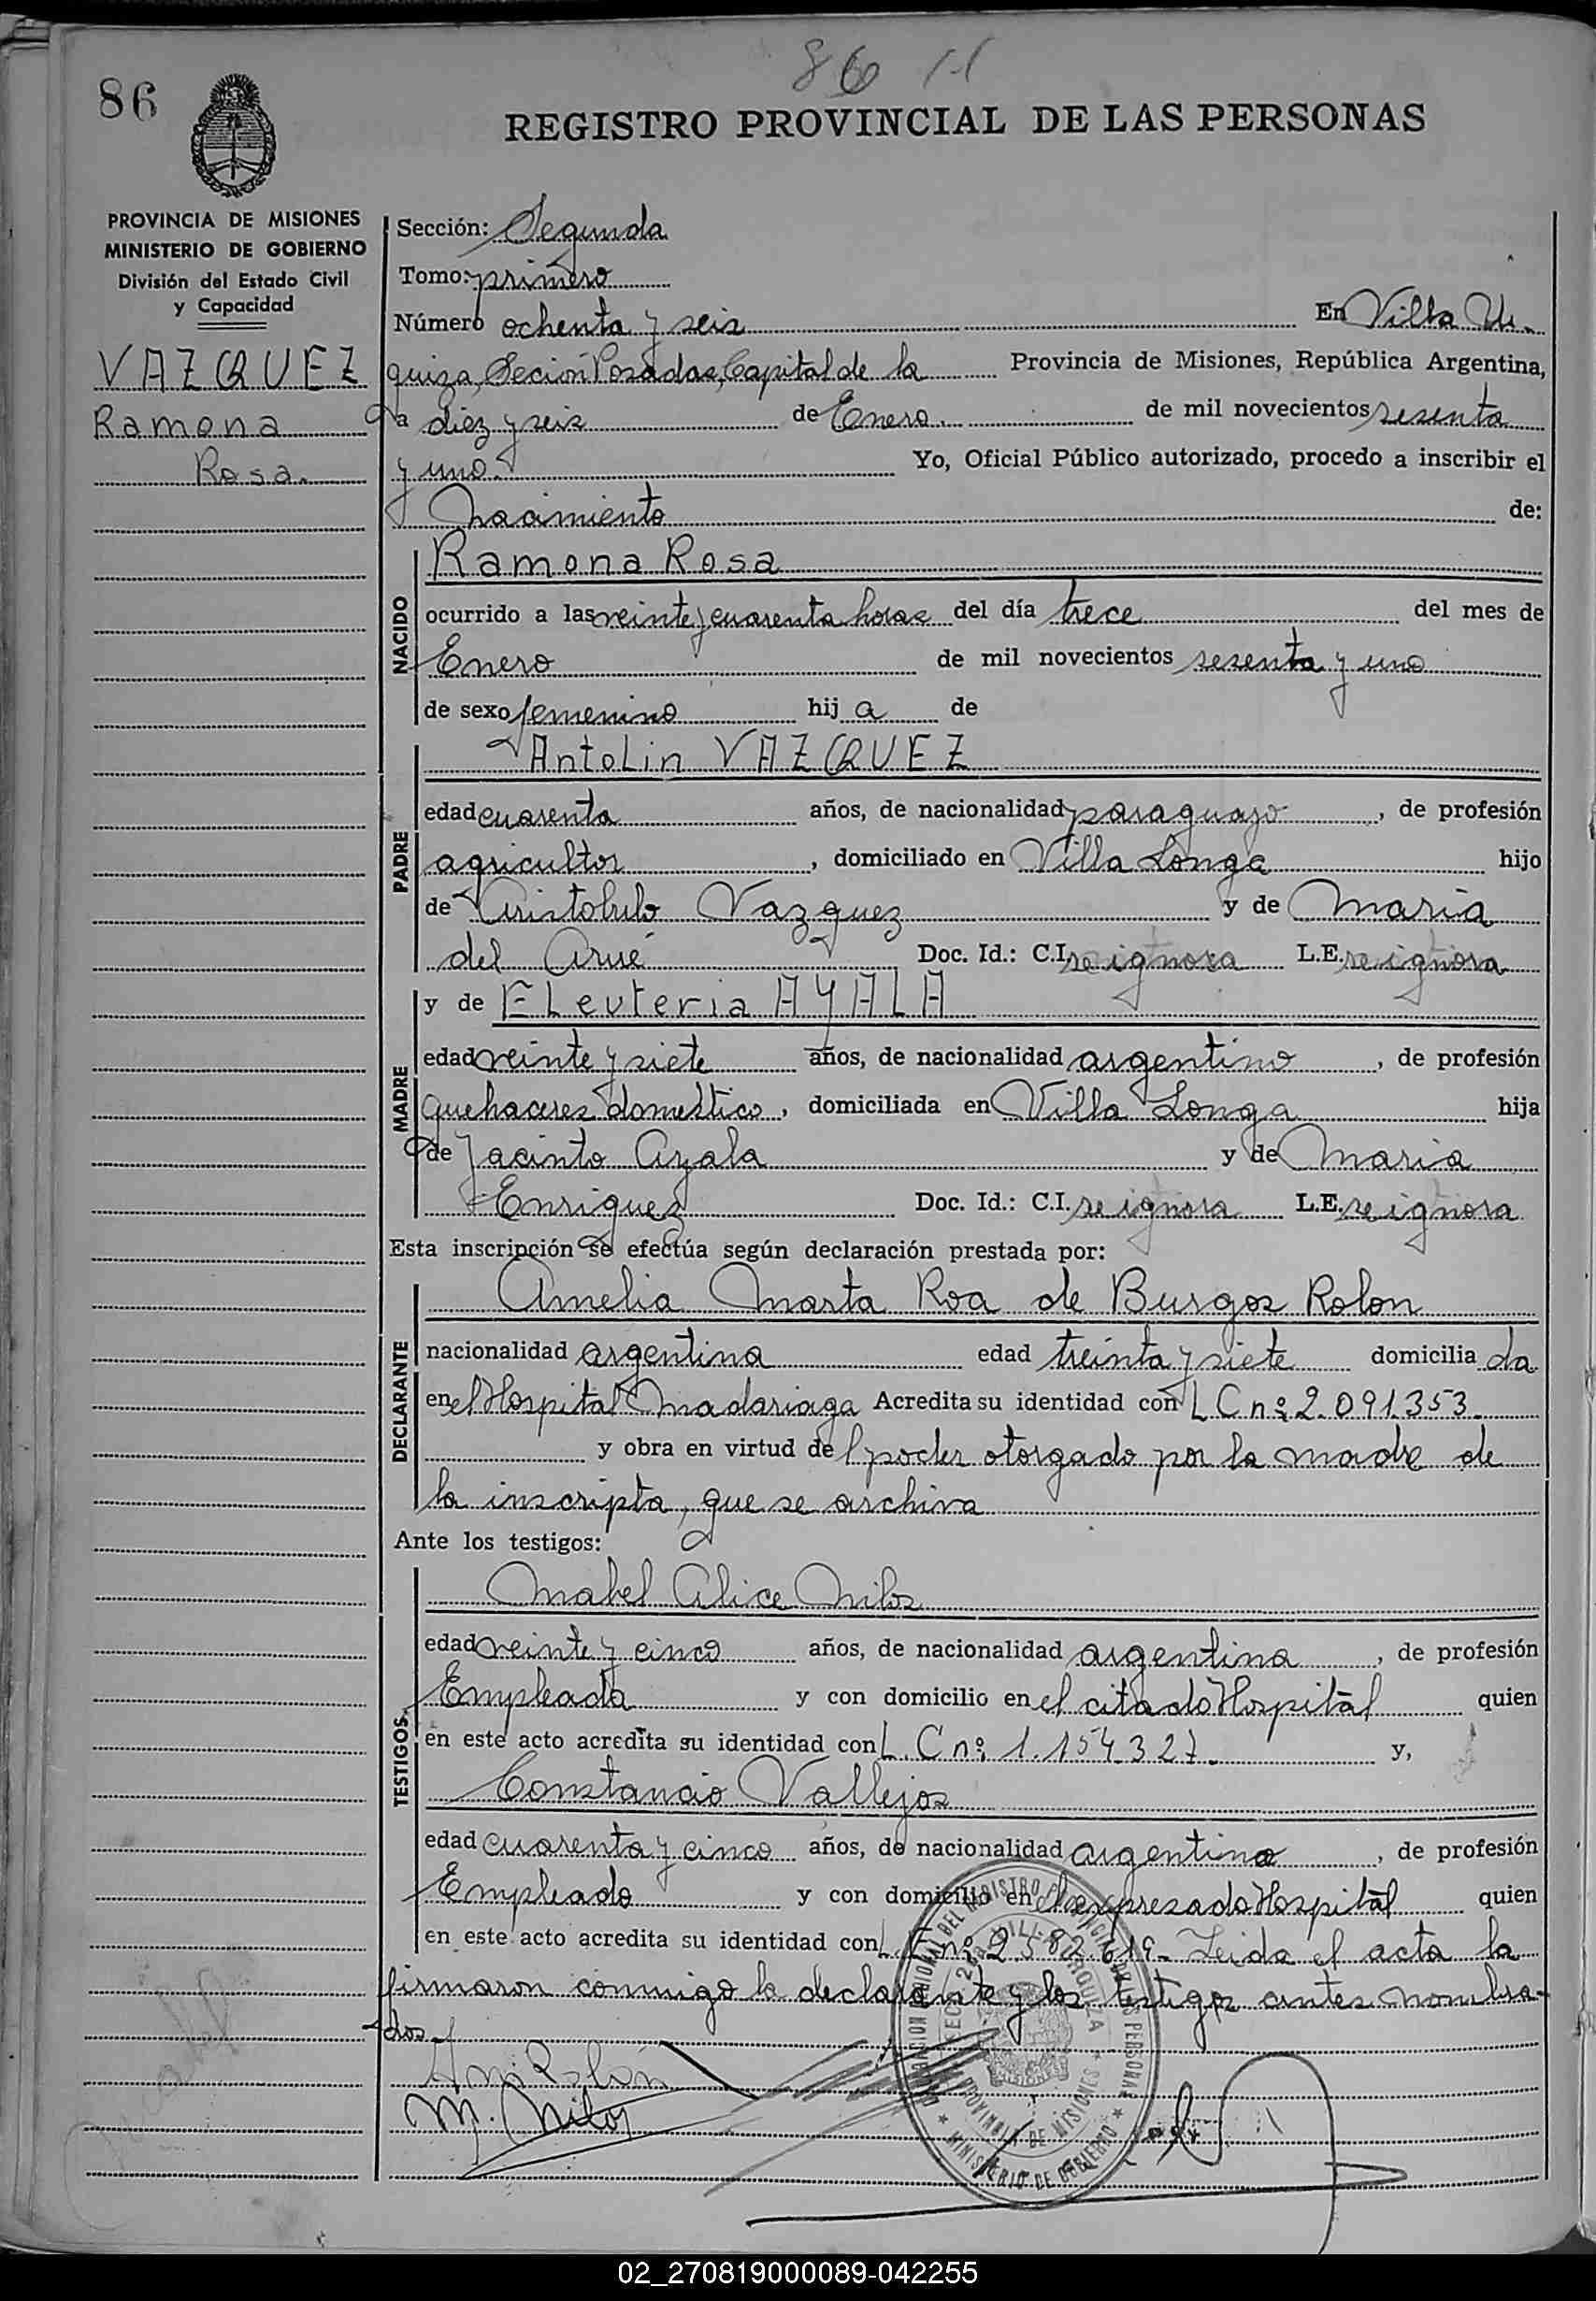 86 H
86
REGISTRO PROVINCIAL DE LAS PERSONAS
PROVINCIA DE MISIONES
MINISTERIO DE GOBIERNO
División del Estado Civil
y Capacidad
VAZQUEZ
Ramona
Rosa.
Sección: Segunda
Tomo: primero
Número ochenta y seis En Villa Ur-
quiza, Seción Posadas, Capital de la Provincia de Misiones, República Argentina,
a diez y seis de Enero. de mil novecientos sesenta
y uno. Yo, Oficial Público autorizado, procedo a inscribir el
Nacimiento de:
NACIDO
Ramona Rosa
ocurrido a las veinte y cuarenta horas del día trece del mes de
Enero de mil novecientos sesenta y uno
de sexo femenino hij a de
PADRE
Antolin VAZQUEZ
edad cuarenta años, de nacionalidad paraguayo, de profesión
agricultor, domiciliado en Villa Longa hijo
de Aristobulo Vazquez y de Maria
del Arué Doc. Id.: C.I. se ignora L.E. se ignora
MADRE
y de Eleuteria AYALA
edad veinte y siete años, de nacionalidad argentino, de profesión
quehaceres domestico, domiciliada en Villa Longa hija
de Jacinto Ayala y de Maria
Enriquez Doc. Id.: C.I. se ignora L.E. se ignora
Esta inscripción se efectúa según declaración prestada por:
DECLARANTE
Amelia Marta Roa de Burgos Rolon
nacionalidad argentina edad treinta y siete domicilia da
en el Hospital Madariaga Acredita su identidad con L C nº 2.091.353.
y obra en virtud de l poder otorgado por la madre de
la inscripta, que se archiva
Ante los testigos:
TESTIGOS
Mabel Alice Milos
edad veinte y cinco años, de nacionalidad argentina, de profesión
Empleada y con domicilio en el citado Hospital quien
en este acto acredita su identidad con L. C nº. 1.154.327. y,
Constancio Vallejos
edad cuarenta y cinco años, de nacionalidad argentino, de profesión
Empleado y con domicilio en el expresado Hospital quien
en este acto acredita su identidad con L. E nº 2582.619- Leida el acta la
firmaron conmigo la declarante y los testigos antes nombra-
dos-
M. Milos
02_270819000089-042255